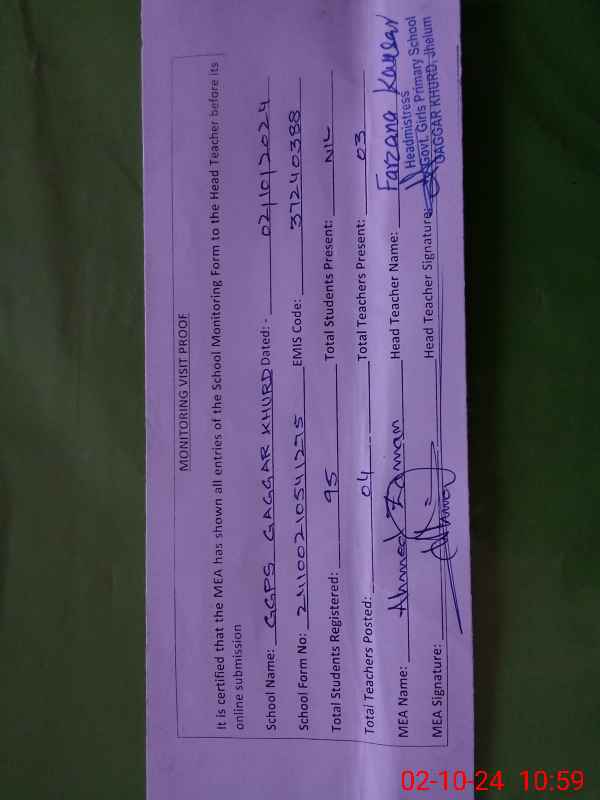 MONITORING VISIT PROOF
It is certified that the MEA has shown all entries of the School Monitoring Form to the Head Teacher before its
online submission
School Name: GGPS GAGGAR KHURD Dated: - 02/10/2024
School Form No: 24100210541275 EMIS Code: 37240388
Total Students Registered: 95 Total Students Present: NIL
Total Teachers Posted: 04 Total Teachers Present: 03
MEA Name: Ahmed Zaman Head Teacher Name: Farzana Kausar
MEA Signature: Head Teacher Signature:
Headmistress
Govt. Girls Primary School
GAGGAR KHURD, Jhelum
02-10-24 10:59